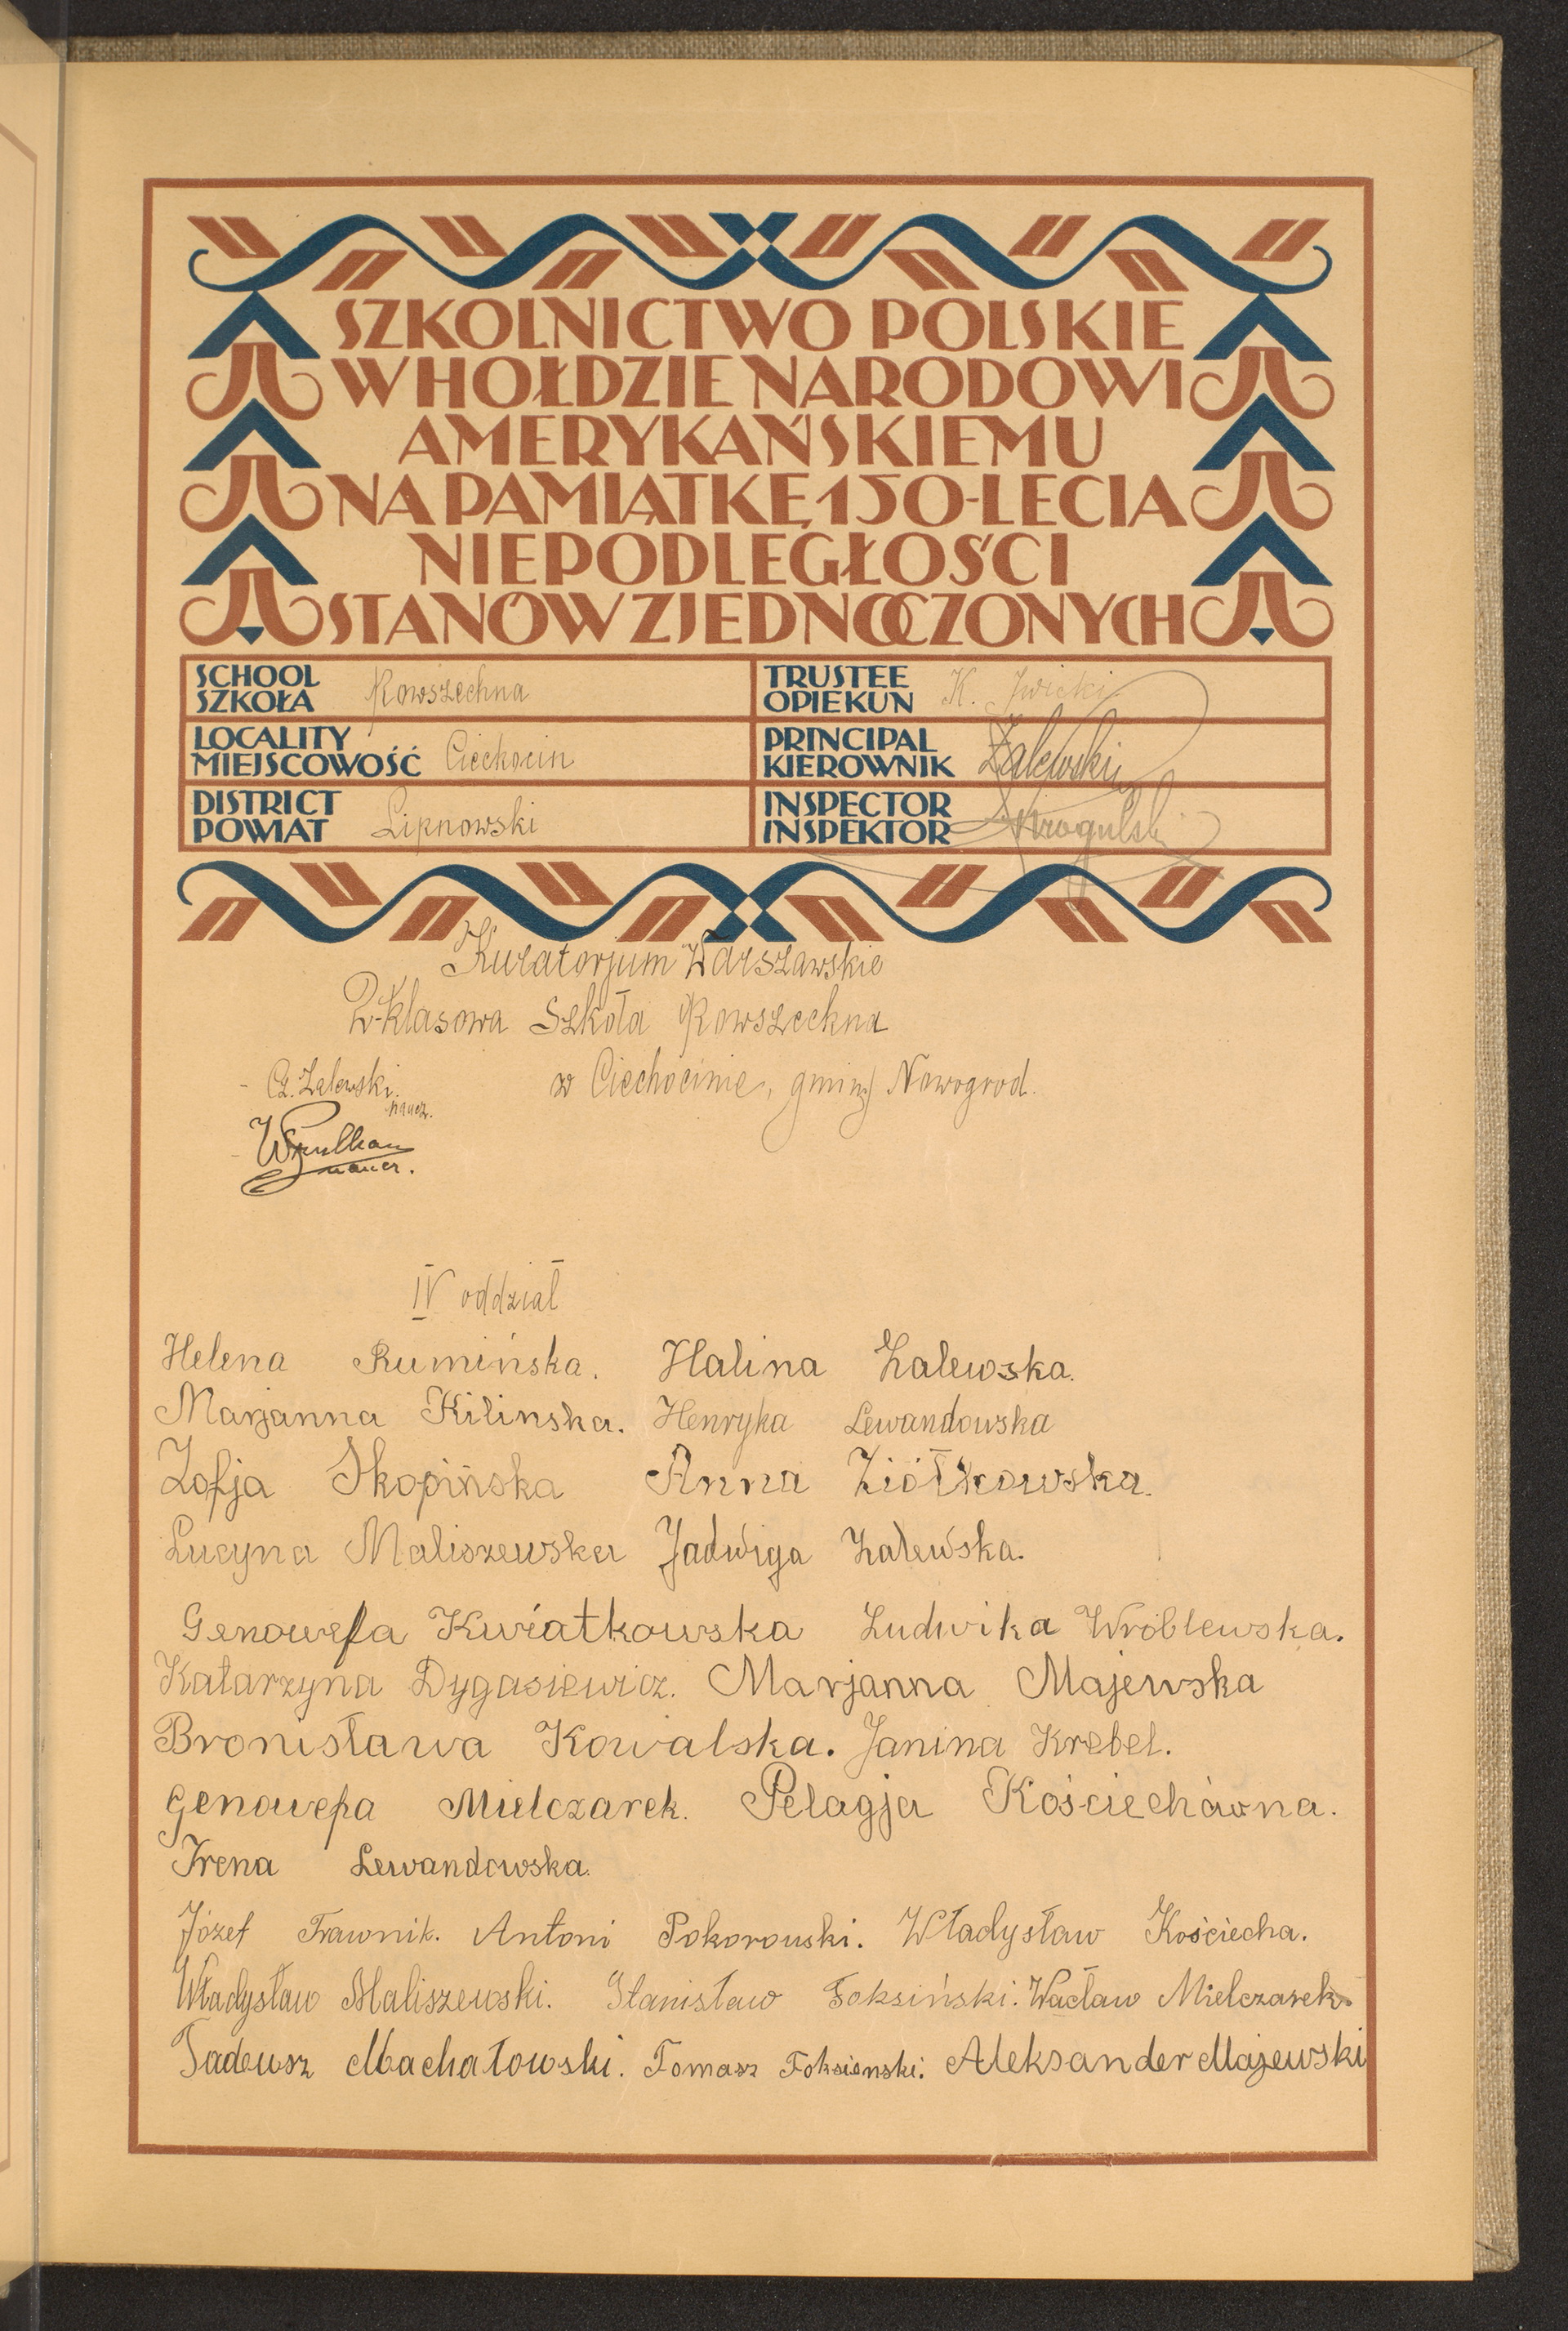 SZKOLNICTWO POLSKIE
W HOŁDZIE NARODOWI
AMERYKAŃSKIEMU
NA PAMIĄTKĘ 150-LECIA
NIEPODLEGŁOŚCI
STANÓW ZJEDNOCZONYCH
SCHOOL
SZKOŁA Powszechna
TRUSTEE
OPIEKUN K.
LOCALITY
MIEJSCOWOŚĆ Ciechocin
PRINCIPAL
KIEROWNIK Zalewski
DISTRICT
POWIAT Lipnowski
INSPECTOR
INSPEKTOR
Kuratorjum Warszawskie
2-klasowa Szkoła Powszechna
w Ciechocinie, gminy Nowogrod.
Cz. Zalewski.
naucz.
naucz.
IV oddział
Helena Rumińska. Halina Zalewska.
Marjanna Kilinska. Henryka Lewandowska
Zofja Skopińska Anna Ziółkowska.
Lucyna Maliszewska Jadwiga Zalewska.
Genowefa Kwiatkowska Ludwika Wróblewska.
Katarzyna Dygasiewicz. Marjanna Majewska
Bronisława Kowalska. Janina Krebel.
Genowefa Mielczarek. Pelagja Kościechówna.
Irena Lewandowska.
Józef Trawnik. Antoni Pokorowski. Władysław Kościecha.
Władysław Maliszewski. Stanisław Foksiński. Wacław Mielczarek.
Tadeusz Machałowski. Tomasz Foksienski. Aleksander Majewski